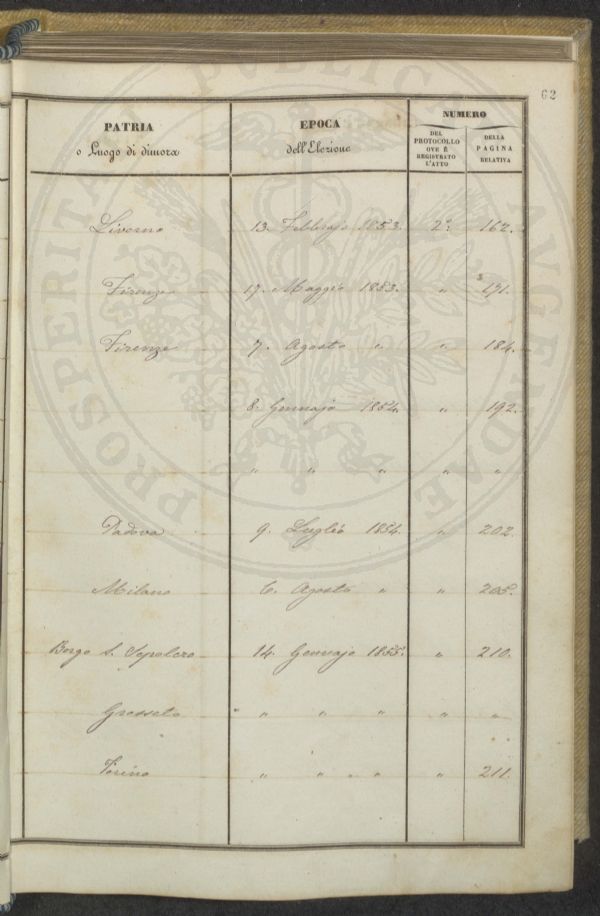 62
PATRIA
o Luogo di dimora
EPOCA
dell'Elezione
NUMERO
DEL
PROTOCOLLO
OVE È
REGISTRATO
L'ATTO
DELLA
PAGINA
RELATIVA
Livorno 13. Febbrajo 1853. 2°. 162.
Firenze 17. Maggio 1853. " 171.
Firenze 7. Agosto " " 184.
8. Gennajo 1854. " 192.
" " " " "
Padova 9. Luglio 1854. " 202.
Milano 6. Agosto " " 205.
Borgo S. Sepolcro 14. Gennajo 1855. " 210.
Grosseto " " " " "
Torino " " " " 211.
PROSPERITATI PUBLICAE AUGENDAE